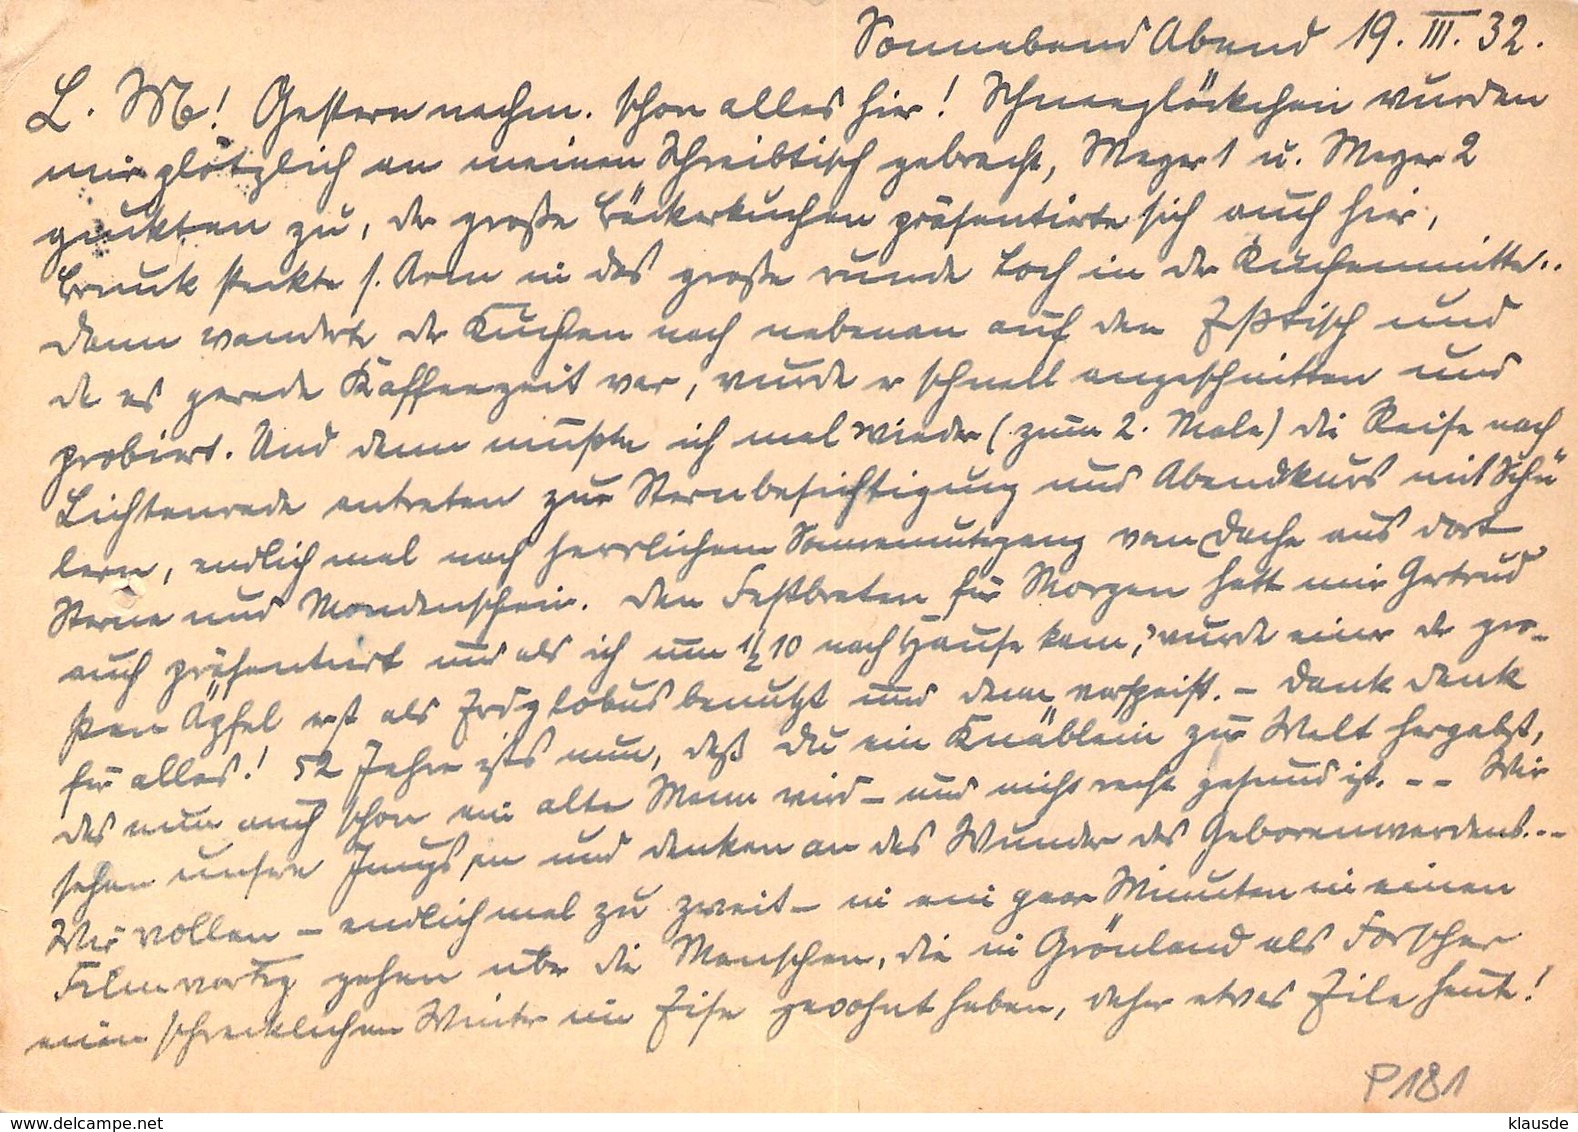 Sonnabend Abend 19. III. 32.
L. M! Gestern nachm. schon alles hier! Schneeglöckchen wurden
mir plötzlich an meinen Schreibtisch gebracht, Meyer 1 u. Meyer 2
guckten zu, der große Bäckerkuchen präsentirte sich auch hier,
steckte s. Arm in das große runde Loch in der Kuchenmitte..
dann wanderte der Kuchen nach nebenan auf den Eßtisch und
da es gerade Kaffeezeit war, wurde er schnell angeschnitten und
probiert. Und dann mußte ich mal wieder (zum 2. Male) die Reise nach
Lichtenrade antreten zur Sternbesichtigung und Abendkurs mit Schü
lern, endlich mal nach herrlichem Sonnenuntergang vom Dache aus dort
Sterne und Mondenschein. Den Festbraten für Morgen hatte mir Gertrud
auch präsentiert und als ich um 1/2 10 nach Hause kam, wurde einer der gro-
ßen Äpfel erst als Erdglobus benutzt und dann verspeist. – Dank Dank
für alles! 52 Jahre ists nun, daß Du ein Knäblein zur Welt hergabst,
das nun auch schon ein alter Mann wird – und nicht recht gesund ist. – – Wir
sehen unsre Jungs an und denken an das Wunder des Geborenwerdens. – –
Wir wollen – endlich mal zu zweit – in ein paar Minuten in einen
Filmvortrg gehen über die Menschen, die in Grönland als Forscher
einen schrecklichen Winter im Eise gewohnt haben, daher etwas Eile heute!
P181
klausde